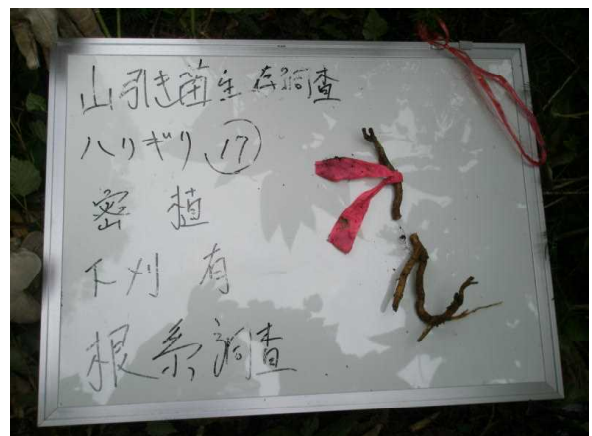 山引き苗生存調査
ハリギリ 17
密植
下刈有
根系調査